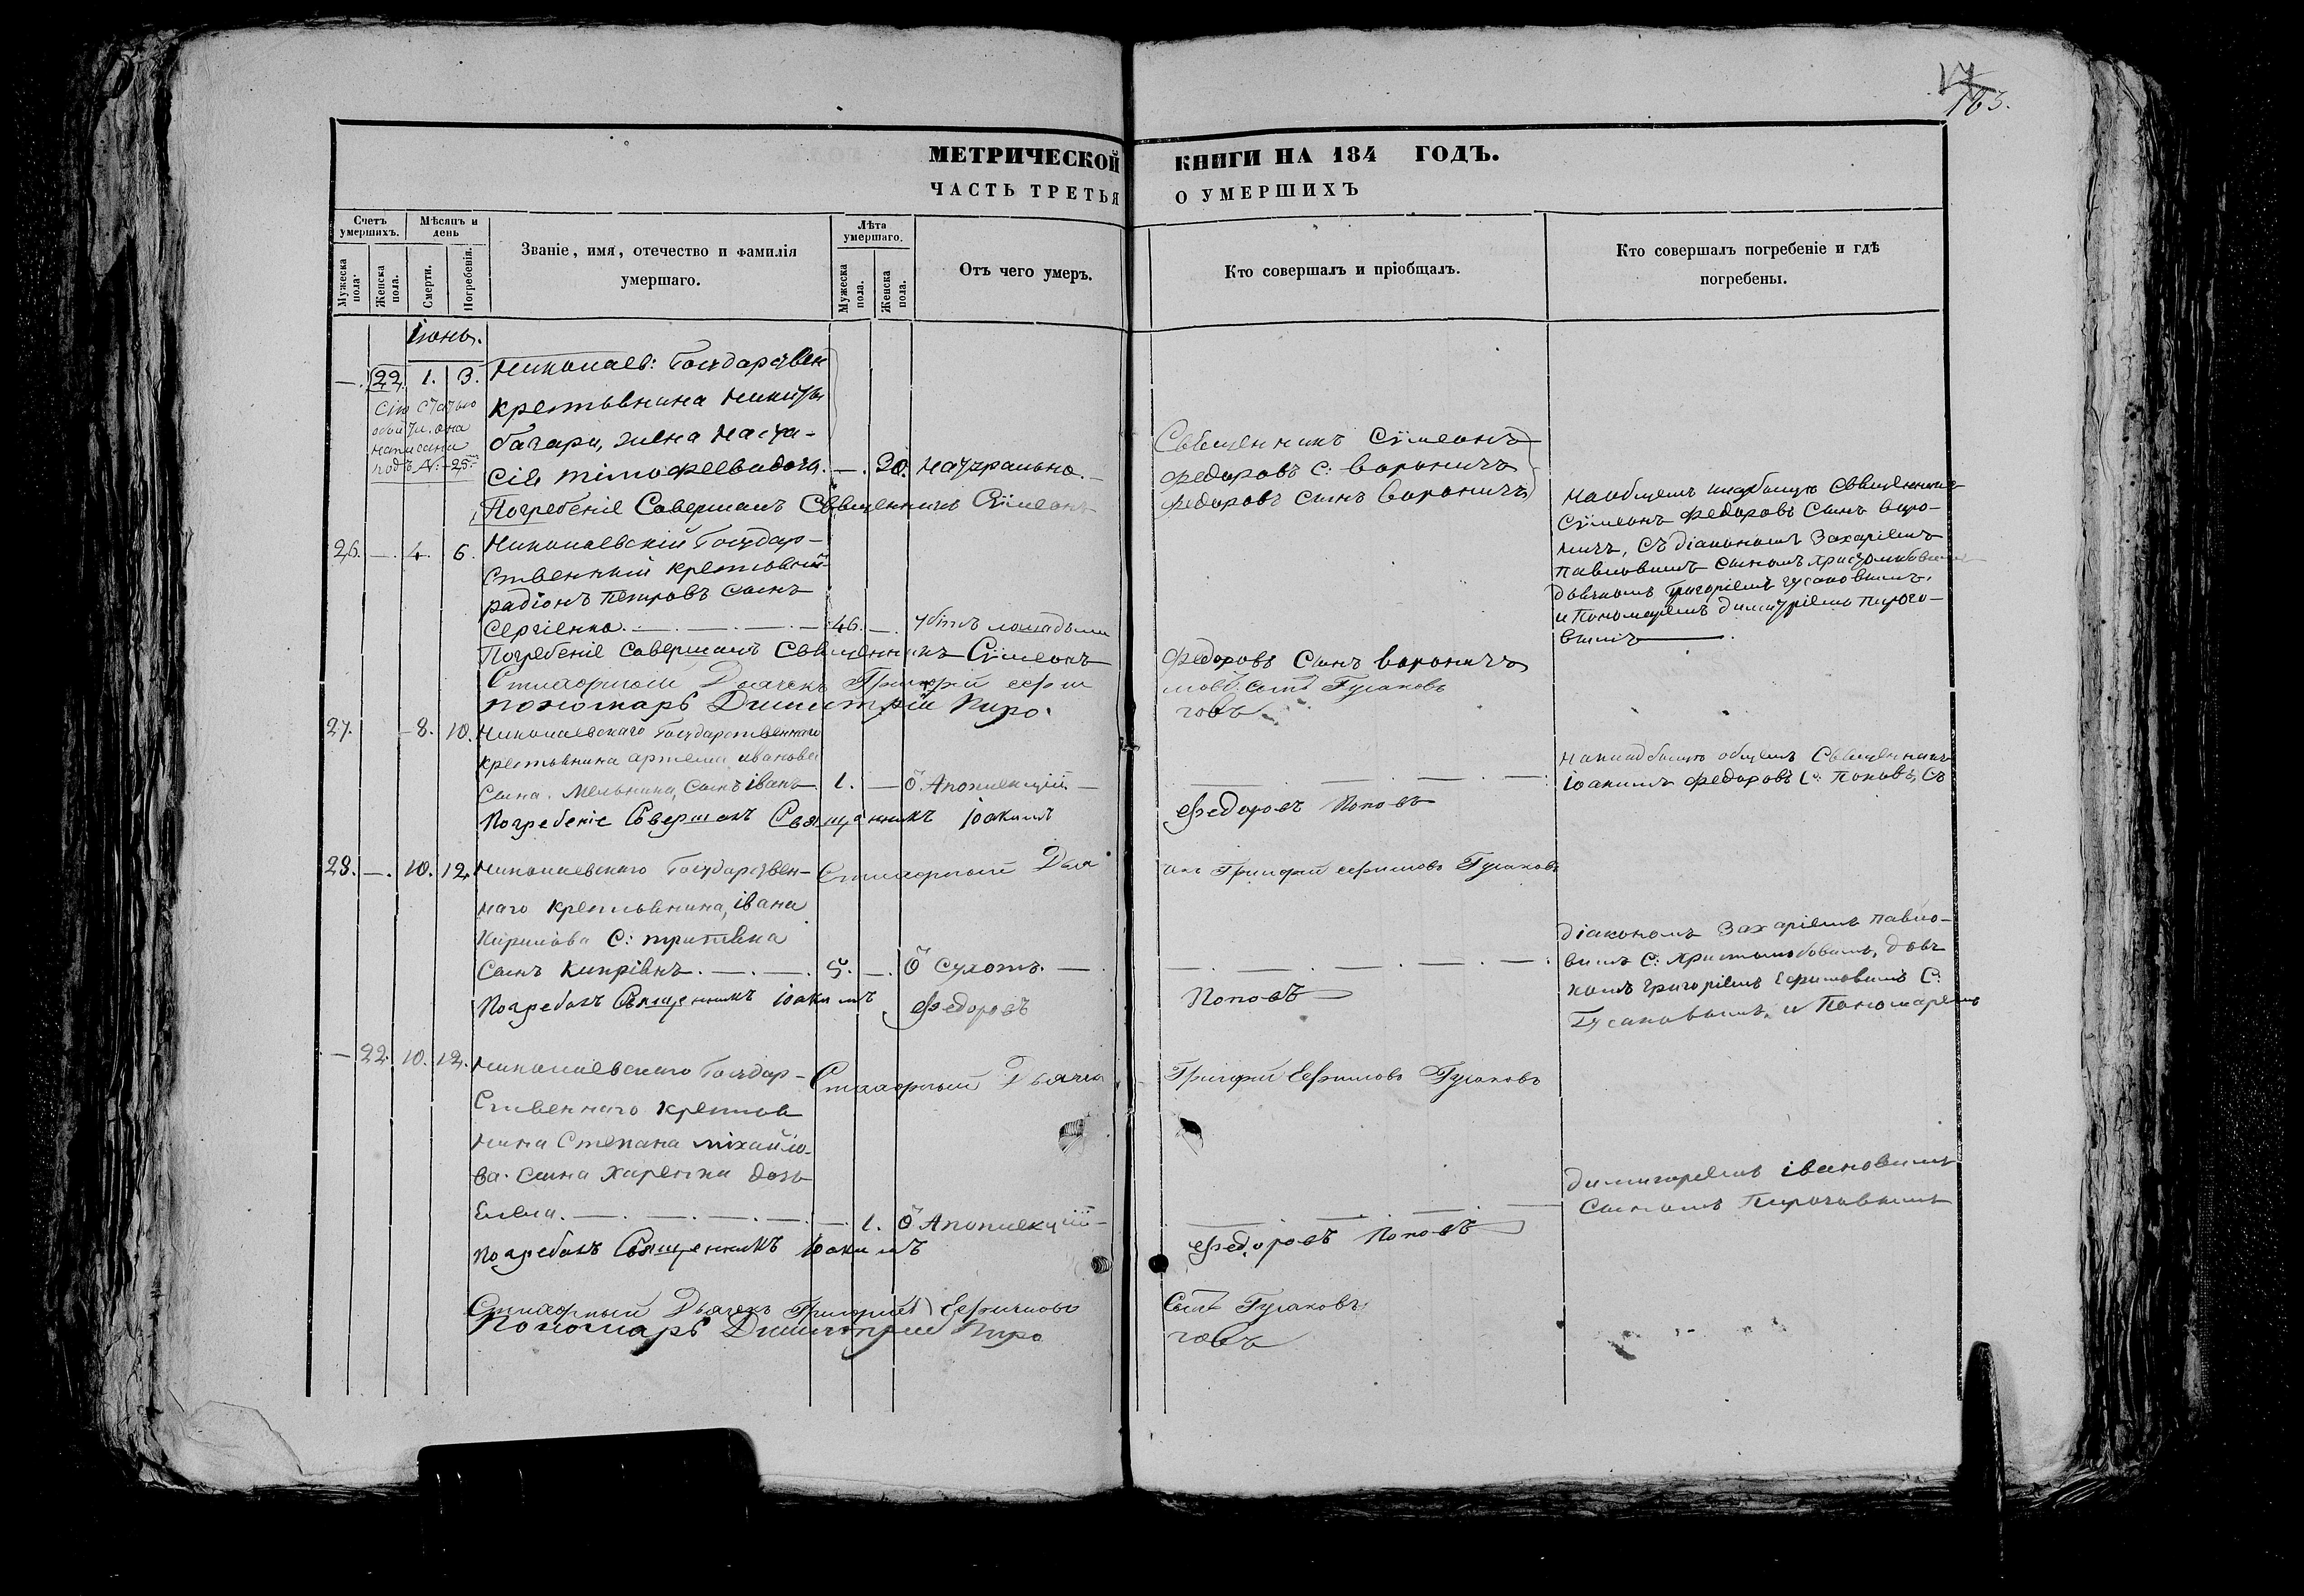 163.
МЕТРИЧЕСКОЙ КНИГИ НА 184 ГОДЪ.
ЧАСТЬ ТРЕТЬЯ О УМЕРШИХЪ
Счетъ умершихъ.
Мужеска пола.
Женска пола.
Мѣсяцъ и день
Смерти.
Погребенія.
Званіе, имя, отечество и фамилія
умершаго.
Лѣта умершаго.
Мужеска пола.
Женска пола.
Отъ чего умеръ.
Кто совершалъ и пріобщалъ.
Кто совершалъ погребеніе и гдѣ
погребены.
Іюнь.
—. 22. 1. 3. Николаев: Государствен
крестьянина Никиты
жена Наста-
сія Тімофеева дочь. —. 30. Натурально.
Сію статью
написана
подъ №: 25
Священникъ Сѵмеонъ
Федоровъ С: Вороничъ
Погребеніе Совершалъ Священникъ Сѵмеонъ Федоровъ Сынъ Вороничъ
26. —. 4. 6. Николаевскій Государ-
ственный крестьянинъ
Радіонъ Петровъ сынъ
Сергіенко. —. —. —. 46. —. Убитъ лошадьми
На общемъ кладбищѣ Священникъ
Сѵмеонъ Федоровъ Сынъ Воро-
ничъ, Съ діакономъ Захаріемъ
Павловымъ сыномъ
дьячкомъ Григоріемъ Гусаковымъ.
и Пономаремъ Димитріемъ Пирого-
вымъ —.
Погребеніе Совершалъ Священникъ Сѵмеонъ Федоровъ Сынъ Вороничъ
Стихарный Дьячекъ Григорій Ефимовъ сынъ Гусаковъ
Пономарь Димитрій Пироговъ
27. — 8. 10. Николаевскаго Государственнаго
крестьянина Артема Иванова
Сына Мельника, Сынъ Іванъ 1. — Ѿ Апоплекціи —
На кладбищѣ общемъ Священникъ
Іоакимъ Федоровъ С: Поповъ, Съ
Погребеніе Совершалъ Священникъ Іоакимъ Федоровъ Поповъ
28. —. 10. 12. Николаевскаго Государствен-
наго крестьянина, Івана
Кирилова С:
Сынъ Кипріянъ. —. —. 5. —. Ѿ Сухотъ. —
Стихарный Дьячекъ Григорій Ефимовъ Гусаковъ
діакономъ Захаріемъ Павло-
вымъ С: Дьяч
комъ Григоріемъ Ефимовымъ С:
Гусаковымъ, и Пономаремъ
Погребалъ Священникъ Іоакимъ Федоровъ Поповъ
— 22. 10. 12. Николаевскаго Государ-
Ственнаго крестья
нина Степана Міхайло-
ва Сына Харенка дочь
Елена. —. —. —. —. 1. Ѿ Апоплекціи —
Стихарный Дьячекъ Григорій Ефимовъ Гусаковъ
Димитріемъ Івановымъ
Сыномъ Пироговымъ
Погребалъ Священникъ Іоакимъ Федоровъ Поповъ
Стихарный Дьячекъ Григорій Ефимовъ Сынъ Гусаковъ
Пономарь Димитрій Пироговъ